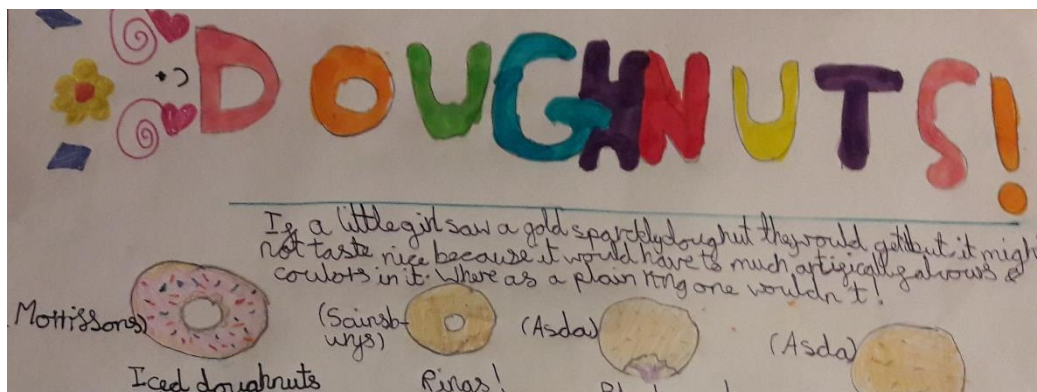 DOUGHNUTS!
If a little girl saw a gold sparkly doughut they would get it but it might
not taste nice because it would have to much artifically flavours &
coulors in it. Where as a plain ring one wouldn't!
Morrissons) (Sainsb- (Asda) (Asda)
urys)
Iced doughnuts Rings!